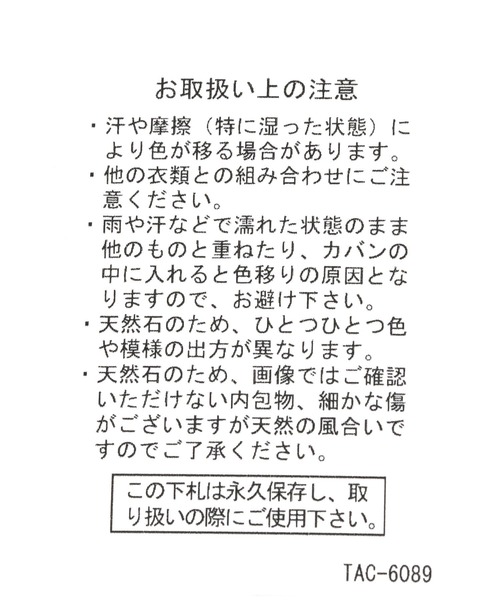 お取扱い上の注意
・汗や摩擦（特に湿った状態）に
より色が移る場合があります。
・他の衣類との組み合わせにご注
意ください。
・雨や汗などで濡れた状態のまま
他のものと重ねたり、カバンの
中に入れると色移りの原因とな
りますので、お避け下さい。
・天然石のため、ひとつひとつ色
や模様の出方が異なります。
・天然石のため、画像ではご確認
いただけない内包物、細かな傷
がございますが天然の風合いで
すのでご了承ください。
この下札は永久保存し、取
り扱いの際にご使用下さい。
TAC-6089